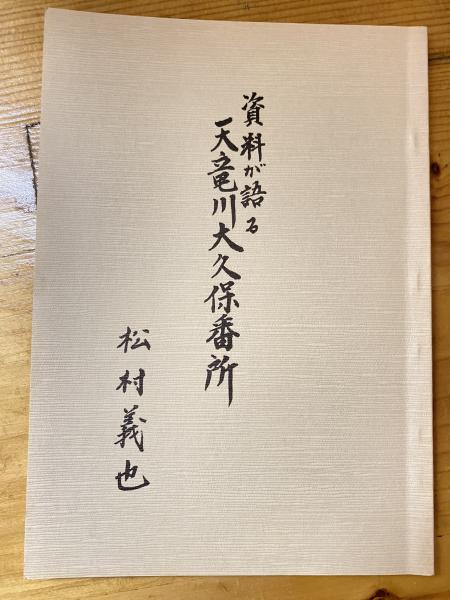 資料が語る
天竜川大久保番所
松村義也